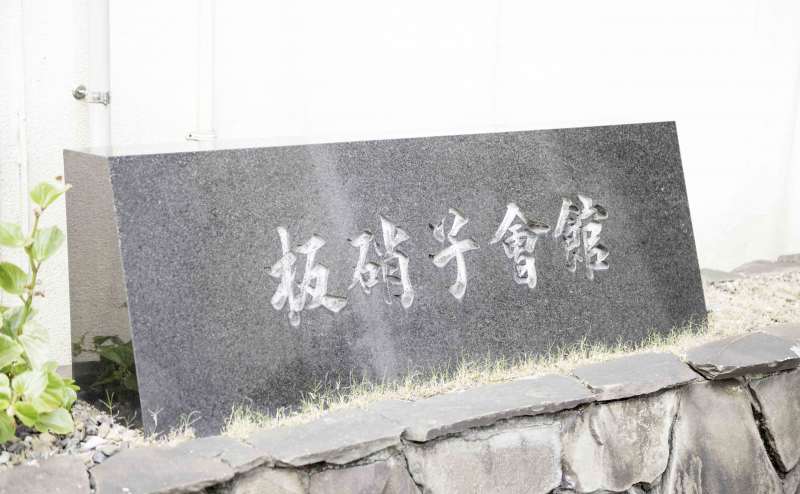 板硝子會館